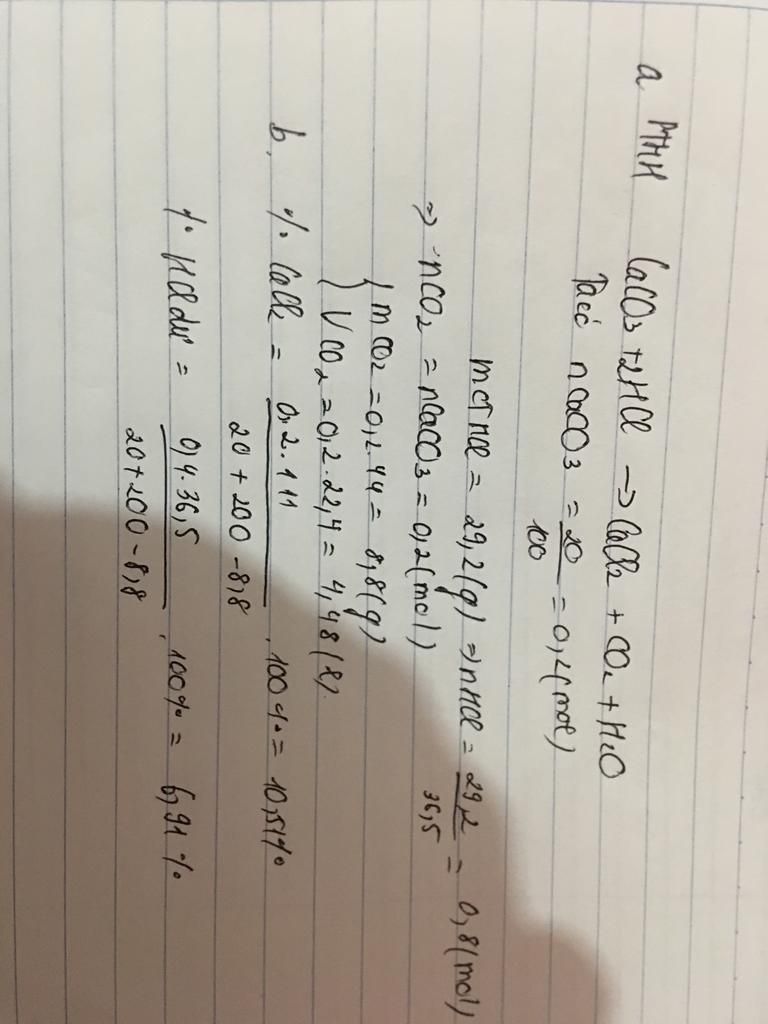 a PTHH CaCO3 + 2HCl → CaCl2 + CO2 + H2O
Ta có nCaCO3 = 20/100 = 0,2 (mol)
mCTHCl = 29,2 (g) ⇒ nHCl = 29,2/36,5 = 0,8 (mol)
⇒ nCO2 = nCaCO3 = 0,2 (mol)
{ mCO2 = 0,2.44 = 8,8 (g)
VCO2 = 0,2.22,4 = 4,48 (l).
b. % CaCl2 = 0,2.111/20 + 200 - 8,8 . 100% = 10,51%
% HCl dư = 0,4.36,5/20+200-8,8 . 100% = 6,91%